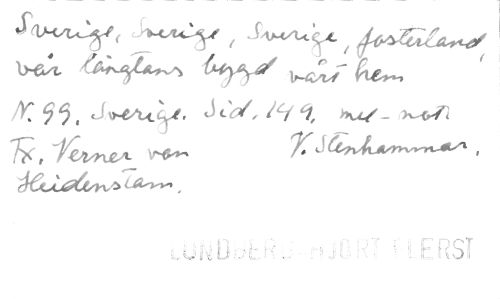 Sverige, Sverige, Sverige, fosterland,
vår längtans bygd vårt hem
N. 99. Sverige. Sid. 149. mel-not
Tx. Verner von V. Stenhammar.
Heidenstam.